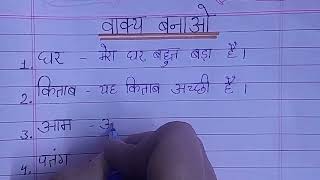 वाक्य बनाओ
1. घर - मेरा घर बहुत बड़ा है।
2. किताब - यह किताब अच्छी है।
3. आम - अ
4. पतंग